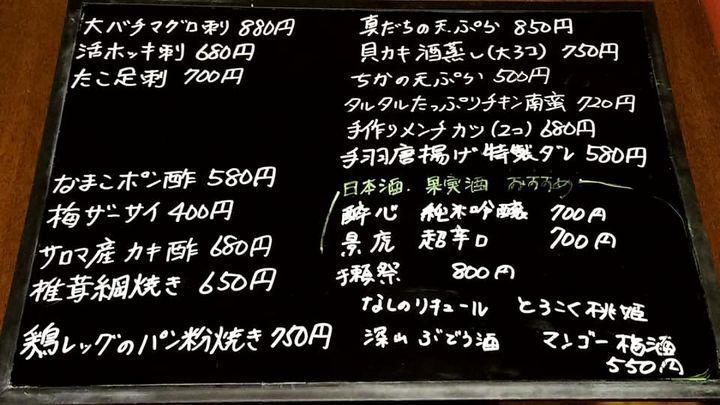 大バチマグロ刺 880円
活ホッキ刺 680円
たこ足刺 700円
なまこポン酢 580円
梅ザーサイ 400円
サロマ産カキ酢 680円
椎茸網焼き 650円
鶏レッグのパン粉焼き 750円
真だちの天ぷら 850円
貝カキ酒蒸し(大3コ) 750円
ちかの天ぷら 500円
タルタルたっぷりチキン南蛮 720円
手作りメンチカツ(2コ) 680円
手羽唐揚げ特製ダレ 580円
日本酒.果実酒 おすすめ
酔心 純米吟醸 700円
景虎 超辛口 700円
獺祭 800円
なしのリキュール とろこく桃姫
深山ぶどう酒 マンゴー梅酒
550円